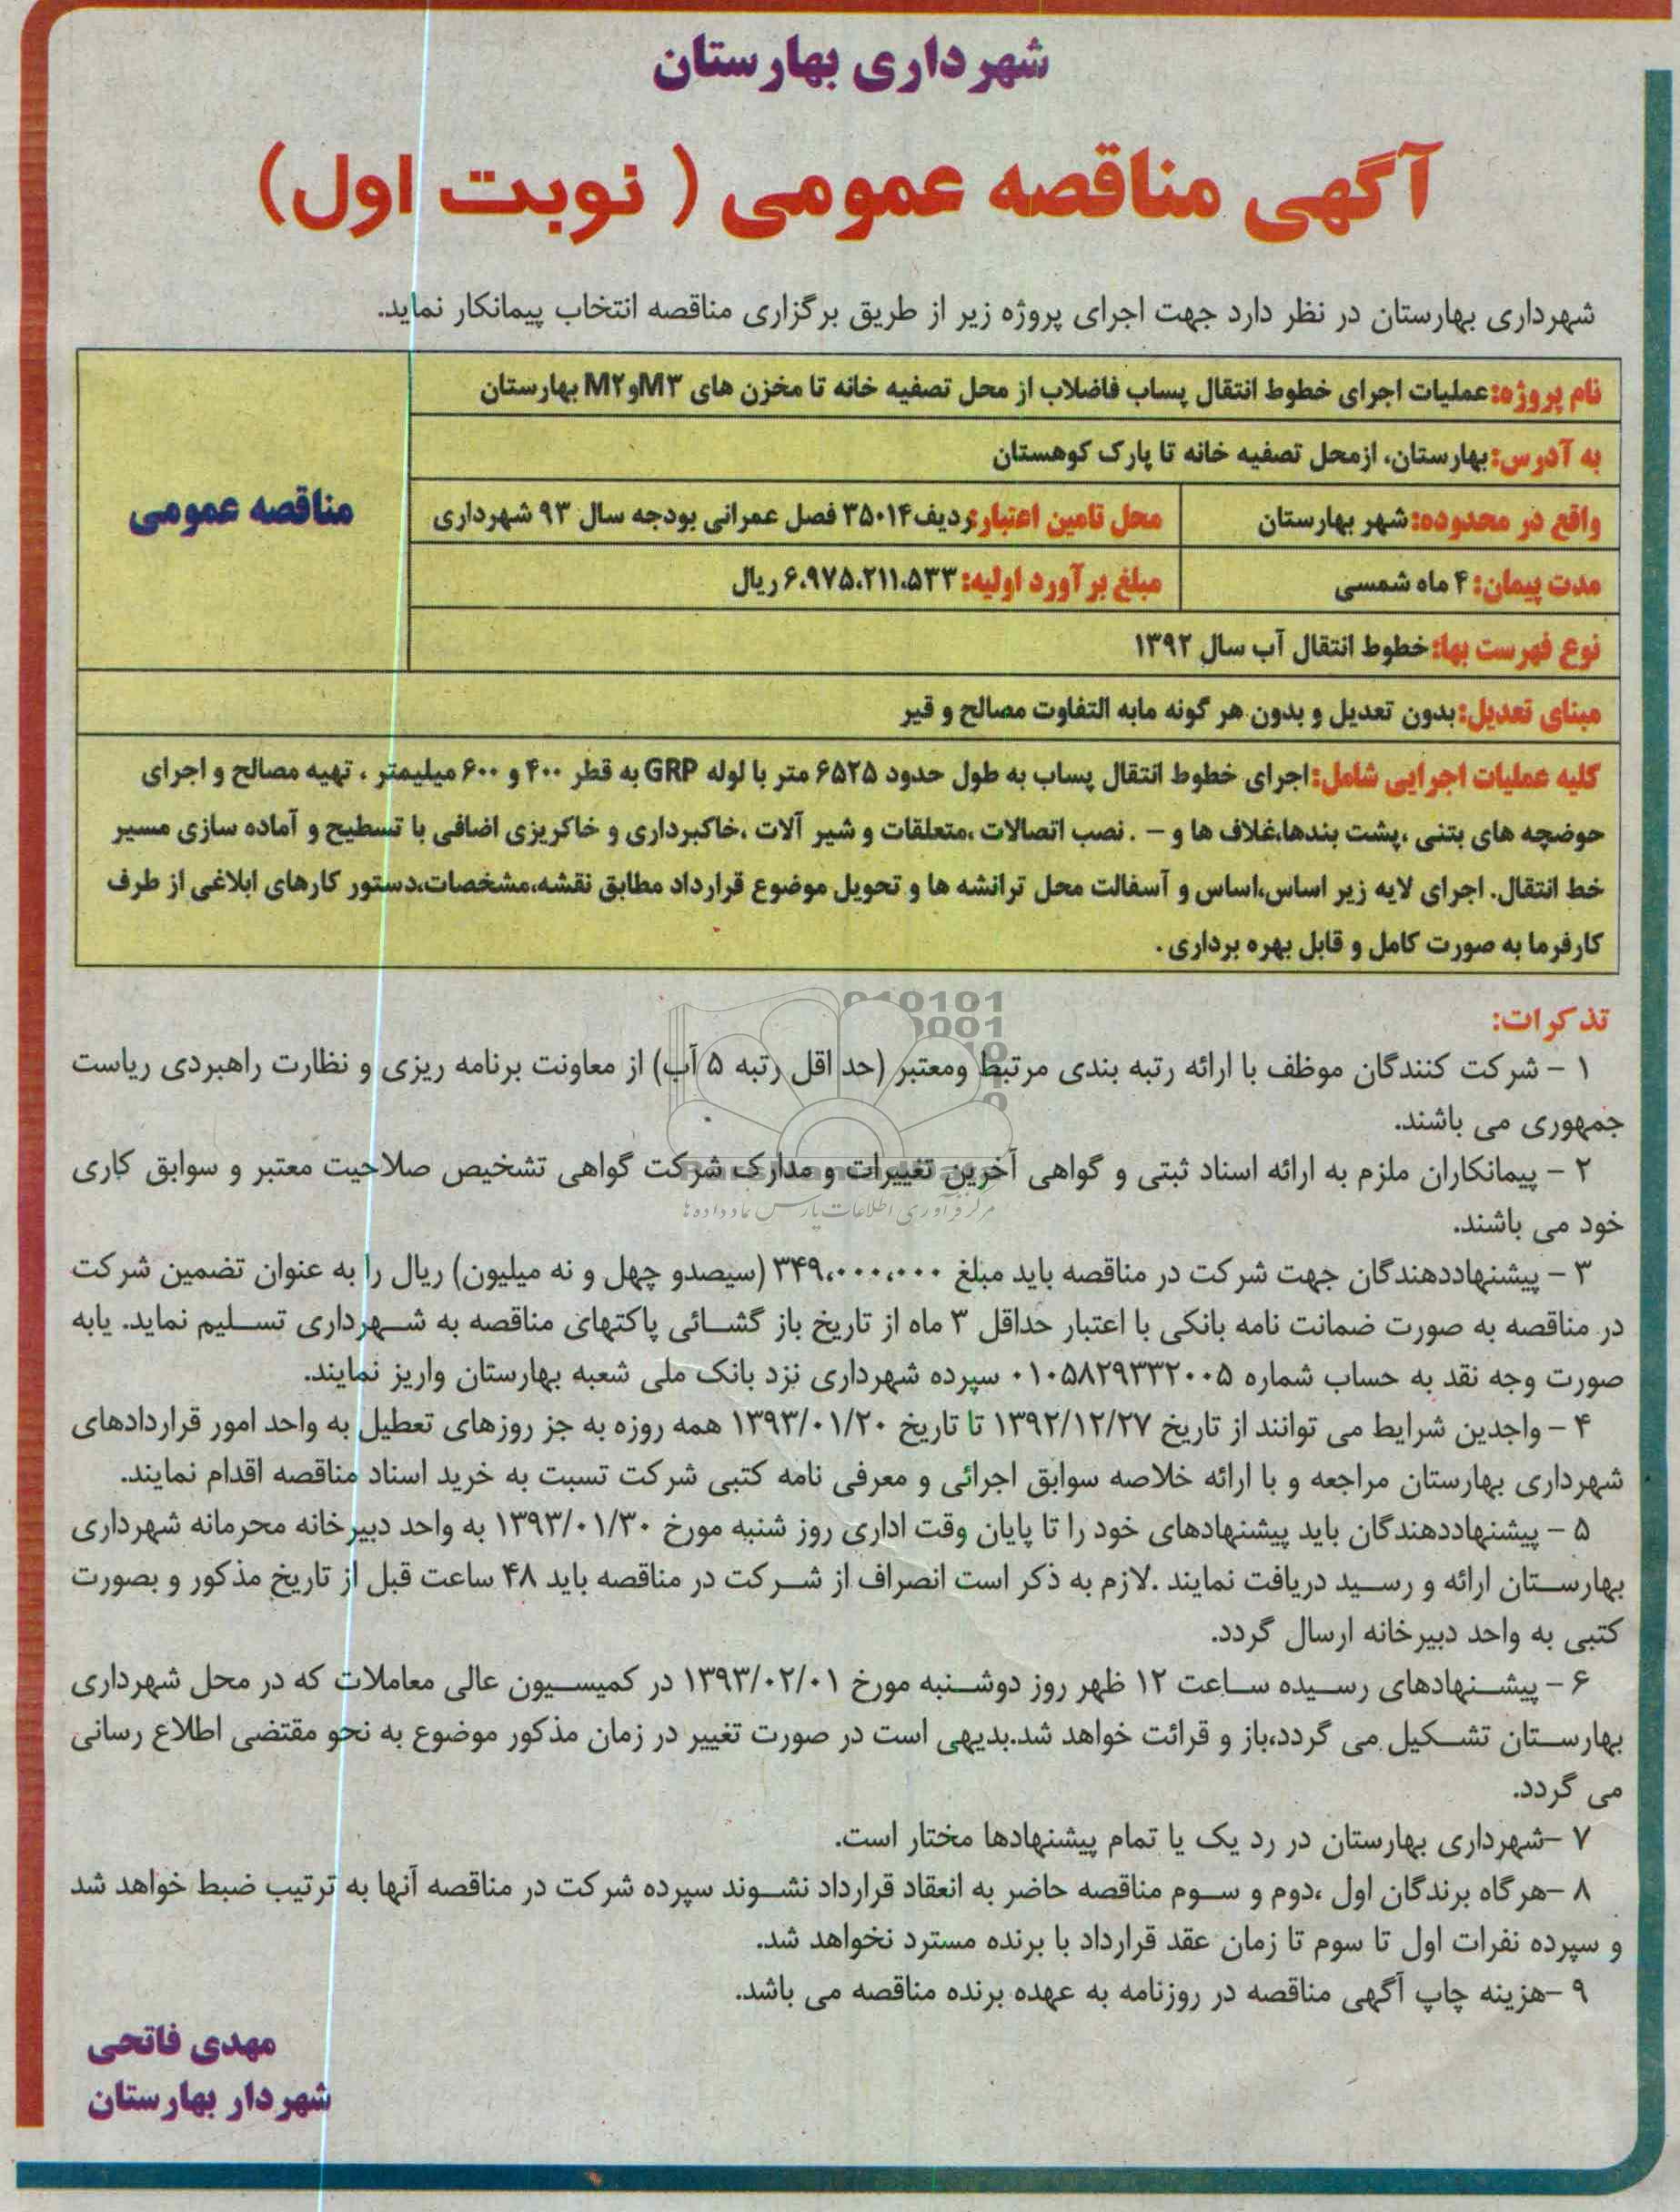 شهرداری بهارستان
آگهی مناقصه عمومی ( نوبت اول)
شهرداری بهارستان در نظر دارد جهت اجرای پروژه زیر از طریق برگزاری مناقصه انتخاب پیمانکار نماید.
نام پروژه: عملیات اجرای خطوط انتقال پساب فاضلاب از محل تصفیه خانه تا مخزن های M۳وM۲ بهارستان
به آدرس: بهارستان، ازمحل تصفیه خانه تا پارک کوهستان
مناقصه عمومی
واقع در محدوده: شهر بهارستان
محل تامین اعتبار: ردیف۳۵۰۱۴ فصل عمرانی بودجه سال ۹۳ شهرداری
مدت پیمان: ۴ ماه شمسی
مبلغ برآورد اولیه: ۶،۹۷۵،۲۱۱،۵۳۳ ریال
نوع فهرست بها: خطوط انتقال آب سال ۱۳۹۲
مبنای تعدیل: بدون تعدیل و بدون هر گونه مابه التفاوت مصالح و قیر
کلیه عملیات اجرایی شامل: اجرای خطوط انتقال پساب به طول حدود ۶۵۲۵ متر با لوله GRP به قطر ۴۰۰ و ۶۰۰ میلیمتر ، تهیه مصالح و اجرای
حوضچه های بتنی ،پشت بندها،غلاف ها و – . نصب اتصالات ،متعلقات و شیر آلات ،خاکبرداری و خاکریزی اضافی با تسطیح و آماده سازی مسیر
خط انتقال. اجرای لایه زیر اساس،اساس و آسفالت محل ترانشه ها و تحویل موضوع قرارداد مطابق نقشه،مشخصات،دستور کارهای ابلاغی از طرف
کارفرما به صورت کامل و قابل بهره برداری .
تذکرات:
۱ – شرکت کنندگان موظف با ارائه رتبه بندی مرتبط ومعتبر (حد اقل رتبه ۵ آب) از معاونت برنامه ریزی و نظارت راهبردی ریاست
جمهوری می باشند.
۲ – پیمانکاران ملزم به ارائه اسناد ثبتی و گواهی آخرین تغییرات و مدارک شرکت گواهی تشخیص صلاحیت معتبر و سوابق کاری
مرکز فرآوری اطلاعات پارس نماد داده ها
خود می باشند.
۳ – پیشنهاددهندگان جهت شرکت در مناقصه باید مبلغ ۳۴۹،۰۰۰،۰۰۰ (سیصدو چهل و نه میلیون) ریال را به عنوان تضمین شرکت
در مناقصه به صورت ضمانت نامه بانکی با اعتبار حداقل ۳ ماه از تاریخ باز گشائی پاکتهای مناقصه به شهرداری تسلیم نماید. یابه
صورت وجه نقد به حساب شماره ۰۱۰۵۸۲۹۳۳۲۰۰۵ سپرده شهرداری نزد بانک ملی شعبه بهارستان واریز نمایند.
۴ – واجدین شرایط می توانند از تاریخ ۱۳۹۲/۱۲/۲۷ تا تاریخ ۱۳۹۳/۰۱/۲۰ همه روزه به جز روزهای تعطیل به واحد امور قراردادهای
شهرداری بهارستان مراجعه و با ارائه خلاصه سوابق اجرائی و معرفی نامه کتبی شرکت تسبت به خرید اسناد مناقصه اقدام نمایند.
۵ – پیشنهاددهندگان باید پیشنهادهای خود را تا پایان وقت اداری روز شنبه مورخ ۱۳۹۳/۰۱/۳۰ به واحد دبیرخانه محرمانه شهرداری
بهارستان ارائه و رسید دریافت نمایند .لازم به ذکر است انصراف از شرکت در مناقصه باید ۴۸ ساعت قبل از تاریخ مذکور و بصورت
کتبی به واحد دبیرخانه ارسال گردد.
۶ – پیشنهادهای رسیده ساعت ۱۲ ظهر روز دوشنبه مورخ ۱۳۹۳/۰۲/۰۱ در کمیسیون عالی معاملات که در محل شهرداری
بهارستان تشکیل می گردد،باز و قرائت خواهد شد.بدیهی است در صورت تغییر در زمان مذکور موضوع به نحو مقتضی اطلاع رسانی
می گردد.
۷ –شهرداری بهارستان در رد یک یا تمام پیشنهادها مختار است.
۸ –هرگاه برندگان اول ،دوم و سوم مناقصه حاضر به انعقاد قرارداد نشوند سپرده شرکت در مناقصه آنها به ترتیب ضبط خواهد شد
و سپرده نفرات اول تا سوم تا زمان عقد قرارداد با برنده مسترد نخواهد شد.
۹ –هزینه چاپ آگهی مناقصه در روزنامه به عهده برنده مناقصه می باشد.
مهدی فاتحی
شهردار بهارستان